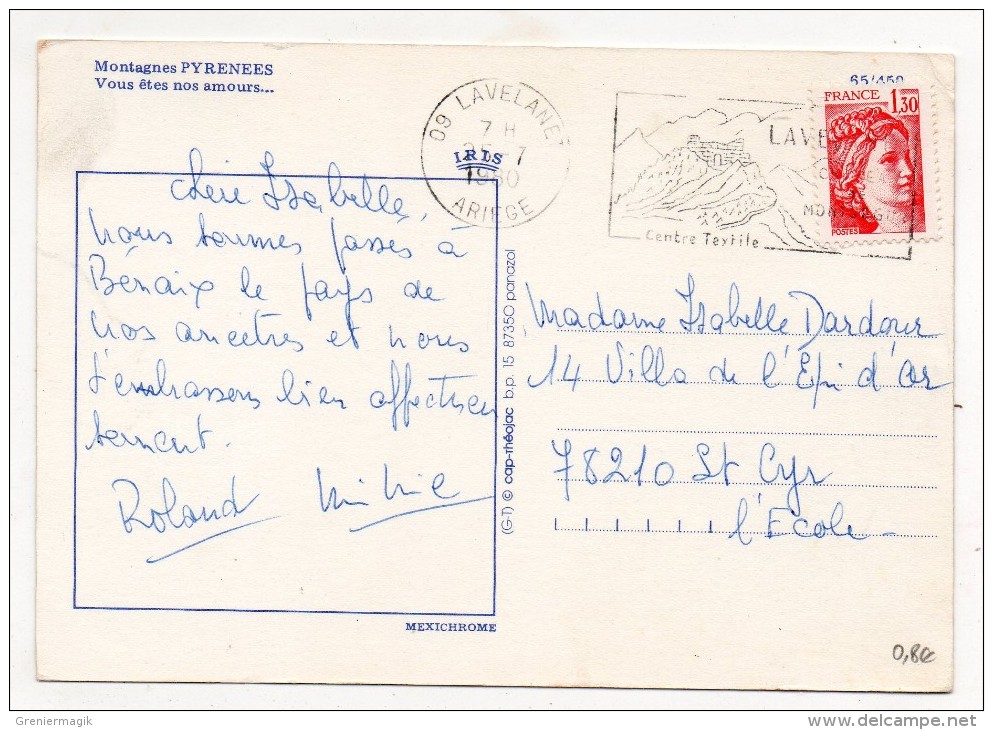 Montagnes PYRENEES
Vous êtes nos amours...
65/450
09 LAVELANET
7 H
25-7
1980
ARIEGE
IRIS
LAVE
Centre Textile
FRANCE 1,30
POSTES
Chère Isabelle,
nous sommes passés à
Bénaix le pays de
nos ancêtres et nous
t'embrassons bien affectueu
sement.
Roland Mimie
(G-T) © cap-théojac b.p. 15 87350 panazol
Madame Isabelle Dardour
14 Villa de l'Épi d'or
78210 St Cyr
l'Ecole-
MEXICHROME
0,80€
Greniermagik
www.delcampe.net